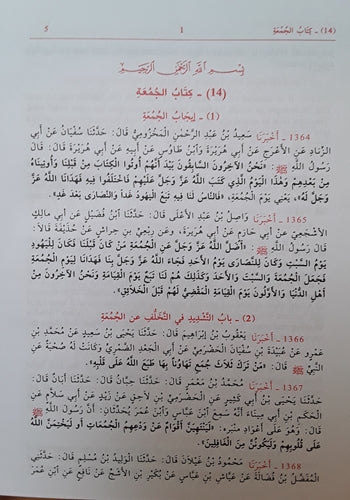 (14) - كِتَابُ الْجُمُعَةِ 1 5
بِسْمِ اللَّهِ الرَّحْمَنِ الرَّحِيمِ
(14) - كِتَابُ الْجُمُعَةِ
(1) - إِيجَابُ الْجُمُعَةِ
1364 - أَخْبَرَنَا سَعِيدُ بْنُ عَبْدِ الرَّحْمَنِ الْمَخْزُومِيُّ قَالَ: حَدَّثَنَا سُفْيَانُ عَنْ أَبِي
الزِّنَادِ عَنِ الْأَعْرَجِ عَنْ أَبِي هُرَيْرَةَ وَابْنِ طَاوُسٍ عَنْ أَبِيهِ عَنْ أَبِي هُرَيْرَةَ قَالَ: قَالَ
رَسُولُ اللَّهِ ﷺ: «نَحْنُ الْآخِرُونَ السَّابِقُونَ بَيْدَ أَنَّهُمْ أُوتُوا الْكِتَابَ مِنْ قَبْلِنَا وَأُوتِينَاهُ
مِنْ بَعْدِهِمْ وَهَذَا الْيَوْمُ الَّذِي كَتَبَ اللَّهُ عَزَّ وَجَلَّ عَلَيْهِمْ فَاخْتَلَفُوا فِيهِ فَهَدَانَا اللَّهُ عَزَّ
وَجَلَّ لَهُ»، يَعْنِي يَوْمَ الْجُمُعَةِ، «فَالنَّاسُ لَنَا فِيهِ تَبَعٌ الْيَهُودُ غَدًا وَالنَّصَارَى بَعْدَ غَدٍ».
1365 - أَخْبَرَنَا وَاصِلُ بْنُ عَبْدِ الْأَعْلَى قَالَ: حَدَّثَنَا ابْنُ فُضَيْلٍ عَنْ أَبِي مَالِكٍ
الْأَشْجَعِيِّ عَنْ أَبِي حَازِمٍ عَنْ أَبِي هُرَيْرَةَ، وَعَنْ رِبْعِيِّ بْنِ حِرَاشٍ عَنْ حُذَيْفَةَ قَالَا:
قَالَ رَسُولُ اللَّهِ ﷺ: «أَضَلَّ اللَّهُ عَزَّ وَجَلَّ عَنِ الْجُمُعَةِ مَنْ كَانَ قَبْلَنَا فَكَانَ لِلْيَهُودِ
يَوْمُ السَّبْتِ وَكَانَ لِلنَّصَارَى يَوْمُ الْأَحَدِ فَجَاءَ اللَّهُ عَزَّ وَجَلَّ بِنَا فَهَدَانَا لِيَوْمِ الْجُمُعَةِ
فَجَعَلَ الْجُمُعَةَ وَالسَّبْتَ وَالْأَحَدَ وَكَذَلِكَ هُمْ لَنَا تَبَعٌ يَوْمَ الْقِيَامَةِ وَنَحْنُ الْآخِرُونَ مِنْ
أَهْلِ الدُّنْيَا وَالْأَوَّلُونَ يَوْمَ الْقِيَامَةِ الْمَقْضِيُّ لَهُمْ قَبْلَ الْخَلَائِقِ».
(2) - بابُ التَّشْدِيدِ فِي التَّخَلُّفِ عَنِ الْجُمُعَةِ
1366 - أَخْبَرَنَا يَعْقُوبُ بْنُ إِبْرَاهِيمَ قَالَ: حَدَّثَنَا يَحْيَى بْنُ سَعِيدٍ عَنْ مُحَمَّدِ بْنِ
عَمْرٍو عَنْ عَبِيدَةَ بْنِ سُفْيَانَ الْحَضْرَمِيِّ عَنْ أَبِي الْجَعْدِ الضَّمْرِيِّ وَكَانَتْ لَهُ صُحْبَةٌ عَنِ
النَّبِيِّ ﷺ قَالَ: «مَنْ تَرَكَ ثَلَاثَ جُمَعٍ تَهَاوُنًا بِهَا طَبَعَ اللَّهُ عَلَى قَلْبِهِ».
1367 - أَخْبَرَنَا مُحَمَّدُ بْنُ مَعْمَرٍ قَالَ: حَدَّثَنَا حِبَّانُ قَالَ: حَدَّثَنَا أَبَانُ قَالَ:
حَدَّثَنَا يَحْيَى بْنُ أَبِي كَثِيرٍ عَنِ الْحَضْرَمِيِّ بْنِ لَاحِقٍ عَنْ زَيْدٍ عَنْ أَبِي سَلَّامٍ عَنِ
الْحَكَمِ بْنِ أَبِي مِينَاءَ أَنَّهُ سَمِعَ ابْنَ عَبَّاسٍ وَابْنَ عُمَرَ يُحَدِّثَانِ: أَنَّ رَسُولَ اللَّهِ ﷺ
قَالَ: وَهُوَ عَلَى أَعْوَادِ مِنْبَرِهِ: «لَيَنْتَهِيَنَّ أَقْوَامٌ عَنْ وَدْعِهِمُ الْجُمُعَاتِ أَوْ لَيَخْتِمَنَّ اللَّهُ
عَلَى قُلُوبِهِمْ وَلَيَكُونُنَّ مِنَ الْغَافِلِينَ».
1368 - أَخْبَرَنَا مَحْمُودُ بْنُ غَيْلَانَ قَالَ: حَدَّثَنَا الْوَلِيدُ بْنُ مُسْلِمٍ قَالَ: حَدَّثَنِي
الْمُفَضَّلُ بْنُ فَضَالَةَ عَنْ عَيَّاشِ بْنِ عَبَّاسٍ عَنْ بُكَيْرِ بْنِ الْأَشَجِّ عَنْ نَافِعٍ عَنِ ابْنِ عُمَرَ